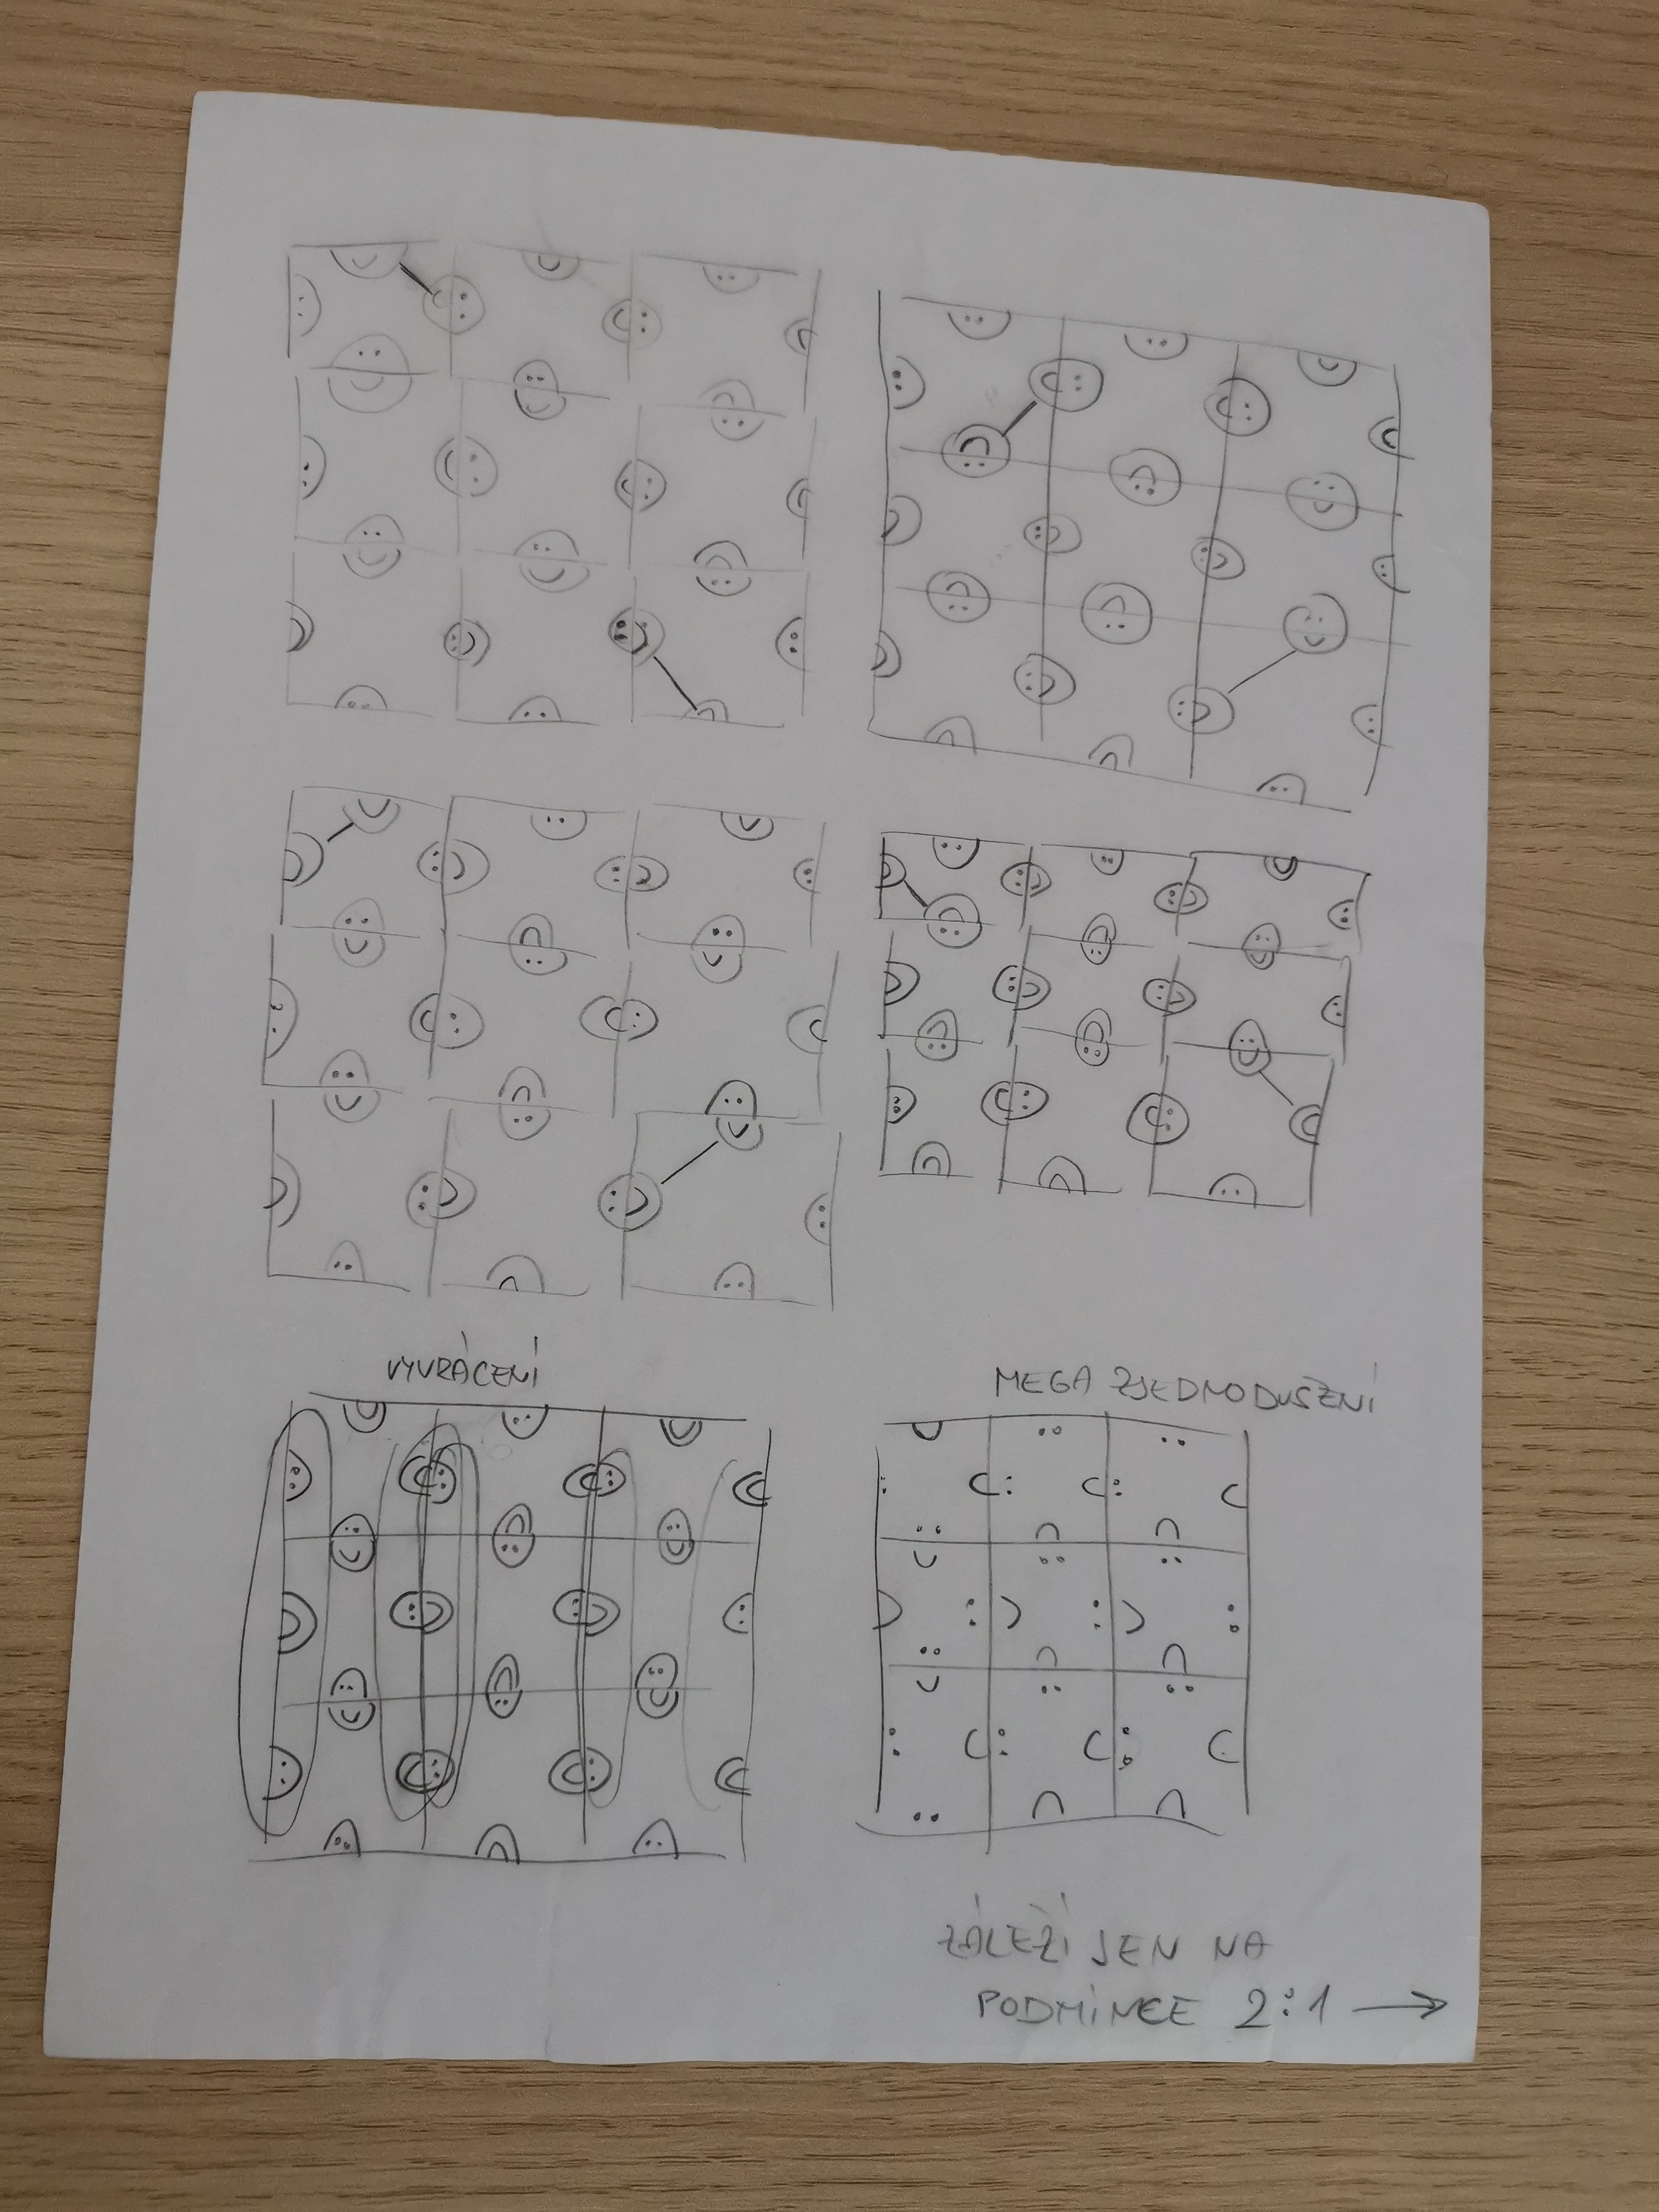 VYVRÁCENÍ
MEGA ZJEDNODUŠENÍ
ZÁLEŽÍ JEN NA
PODMÍNCE 2:1 →